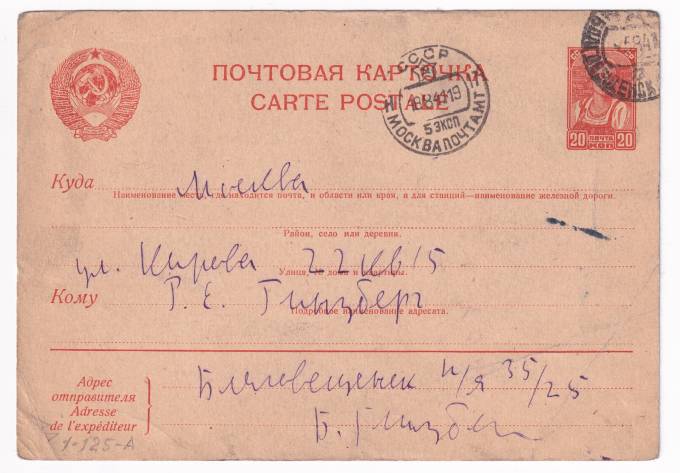 ПОЧТОВАЯ КАРТОЧКА
CARTE POSTALE
СССР
8841 19
5 ЭКСП
МОСКВА ПОЧТАМТ
20 ПОЧТА КОП 20
Куда Москва
Наименование места, где находится почта, и области или края, а для станций—наименование железной дороги.
Район, село или деревня.
ул. Кирова 22 кв 15
Улица, № дома и квартиры.
Кому Р. Е. Гинзберг
Подробное наименование адресата.
Адрес
отправителя
Adresse
de l'expéditeur
Благовещенск п/я 35/25
Б. Гинзберг
1-125-А